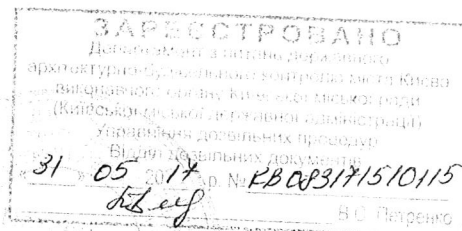 ЗАРЕЄСТРОВАНО
Департамент з питань державного
архітектурно-будівельного контролю міста Києва
виконавчого органу Київської міської ради
(Київської міської державної адміністрації)
Управління дозвільних процедур
Відділ дозвільних документів
«31» 05 2017 р. № КВ083171510115
В.О. Петренко